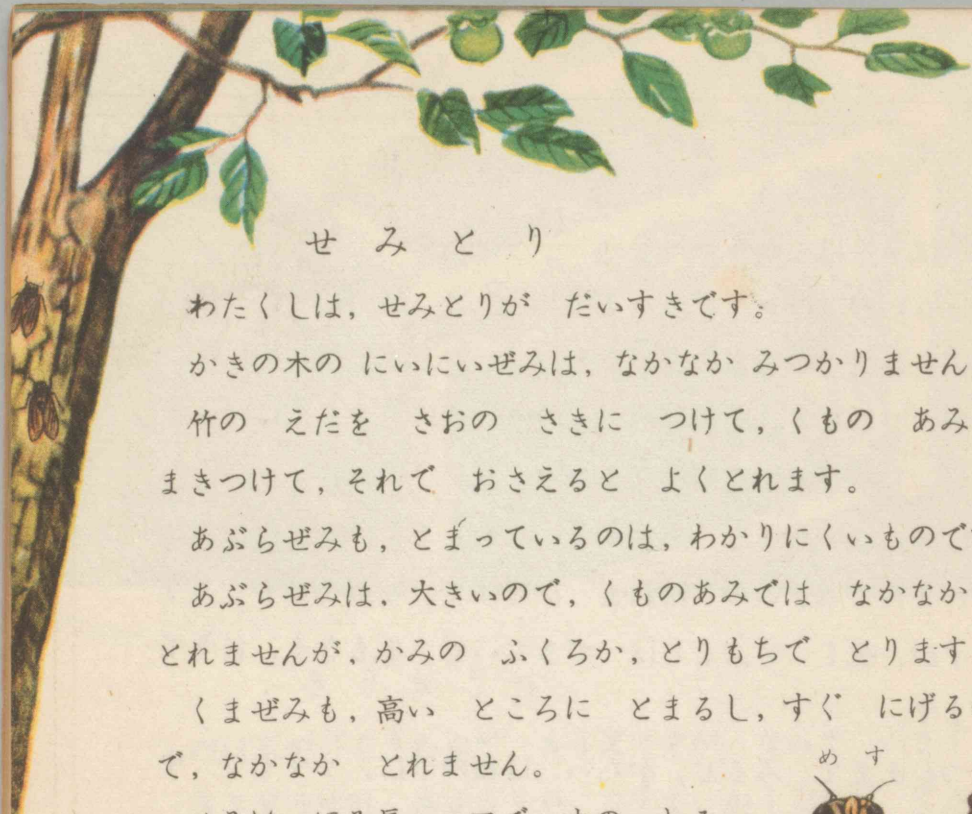 せみとり
わたくしは，せみとりが　だいすきです。
かきの木の にいにいぜみは，なかなか みつかりません
竹の　えだを　さおの　さきに　つけて，くもの　あみ
まきつけて，それで　おさえると　よくとれます。
あぶらぜみも，とまっているのは，わかりにくいもので
あぶらぜみは，大きいので，くものあみでは　なかなか
とれませんが，かみの　ふくろか，とりもちで　とります
くまぜみも，高い　ところに　とまるし，すぐ　にげる
で，なかなか　とれません。
めす